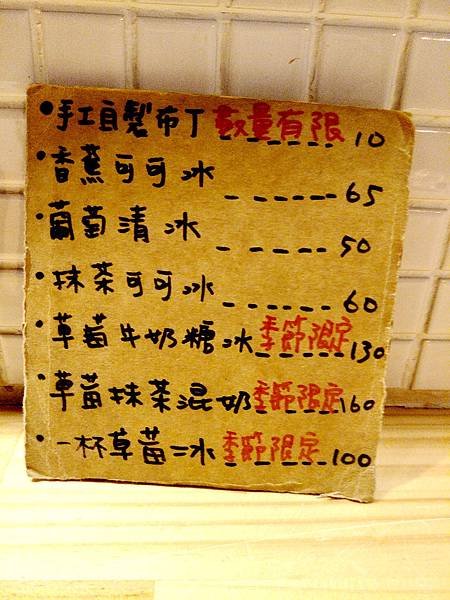 •手工自製布丁 數量有限 ------ 10
•香蕉可可冰 ------ 65
•葡萄清冰 ----- 50
•抹茶可可冰 ------ 60
•草莓牛奶糖冰 季節限定 ------ 130
•草莓抹茶混奶 季節限定 ----- 160
•一杯草莓二冰 季節限定 ------ 100